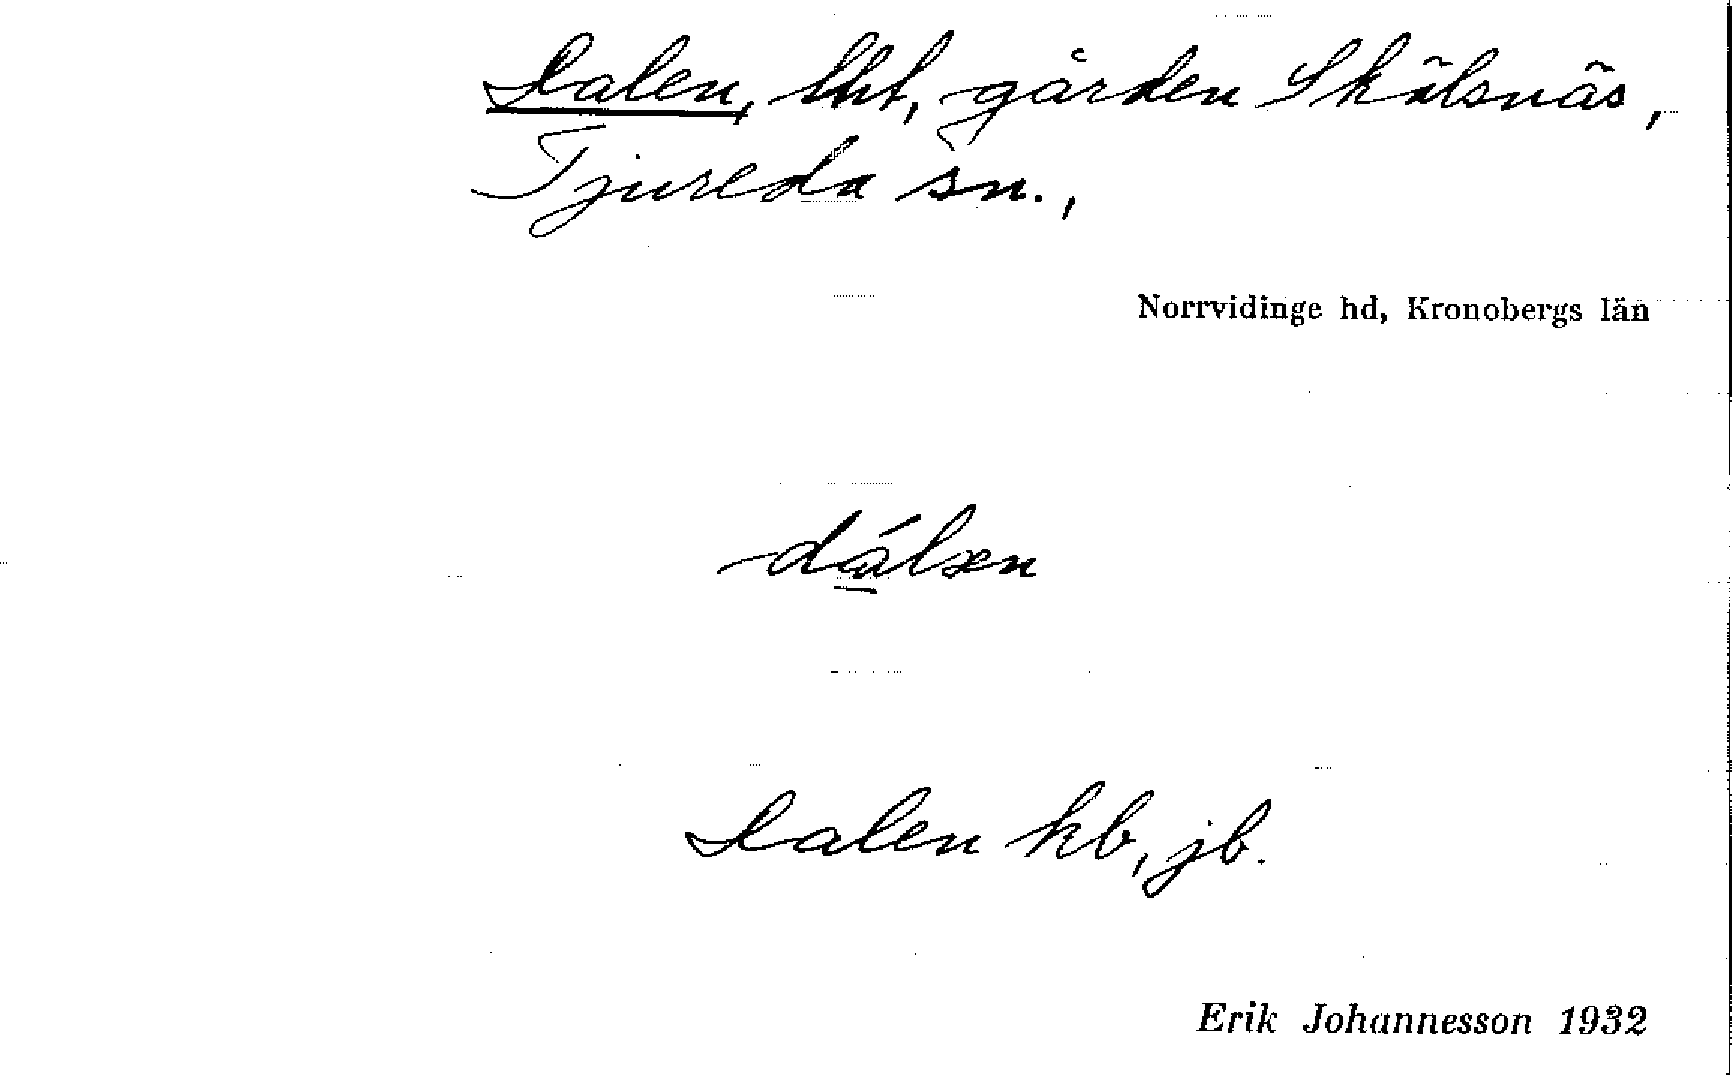 Dalen, lht, gården Skälsnäs,
Tjureda sn.,
Norrvidinge hd, Kronobergs län
dálæn
Dalen kb, jb.
Erik Johannesson 1932